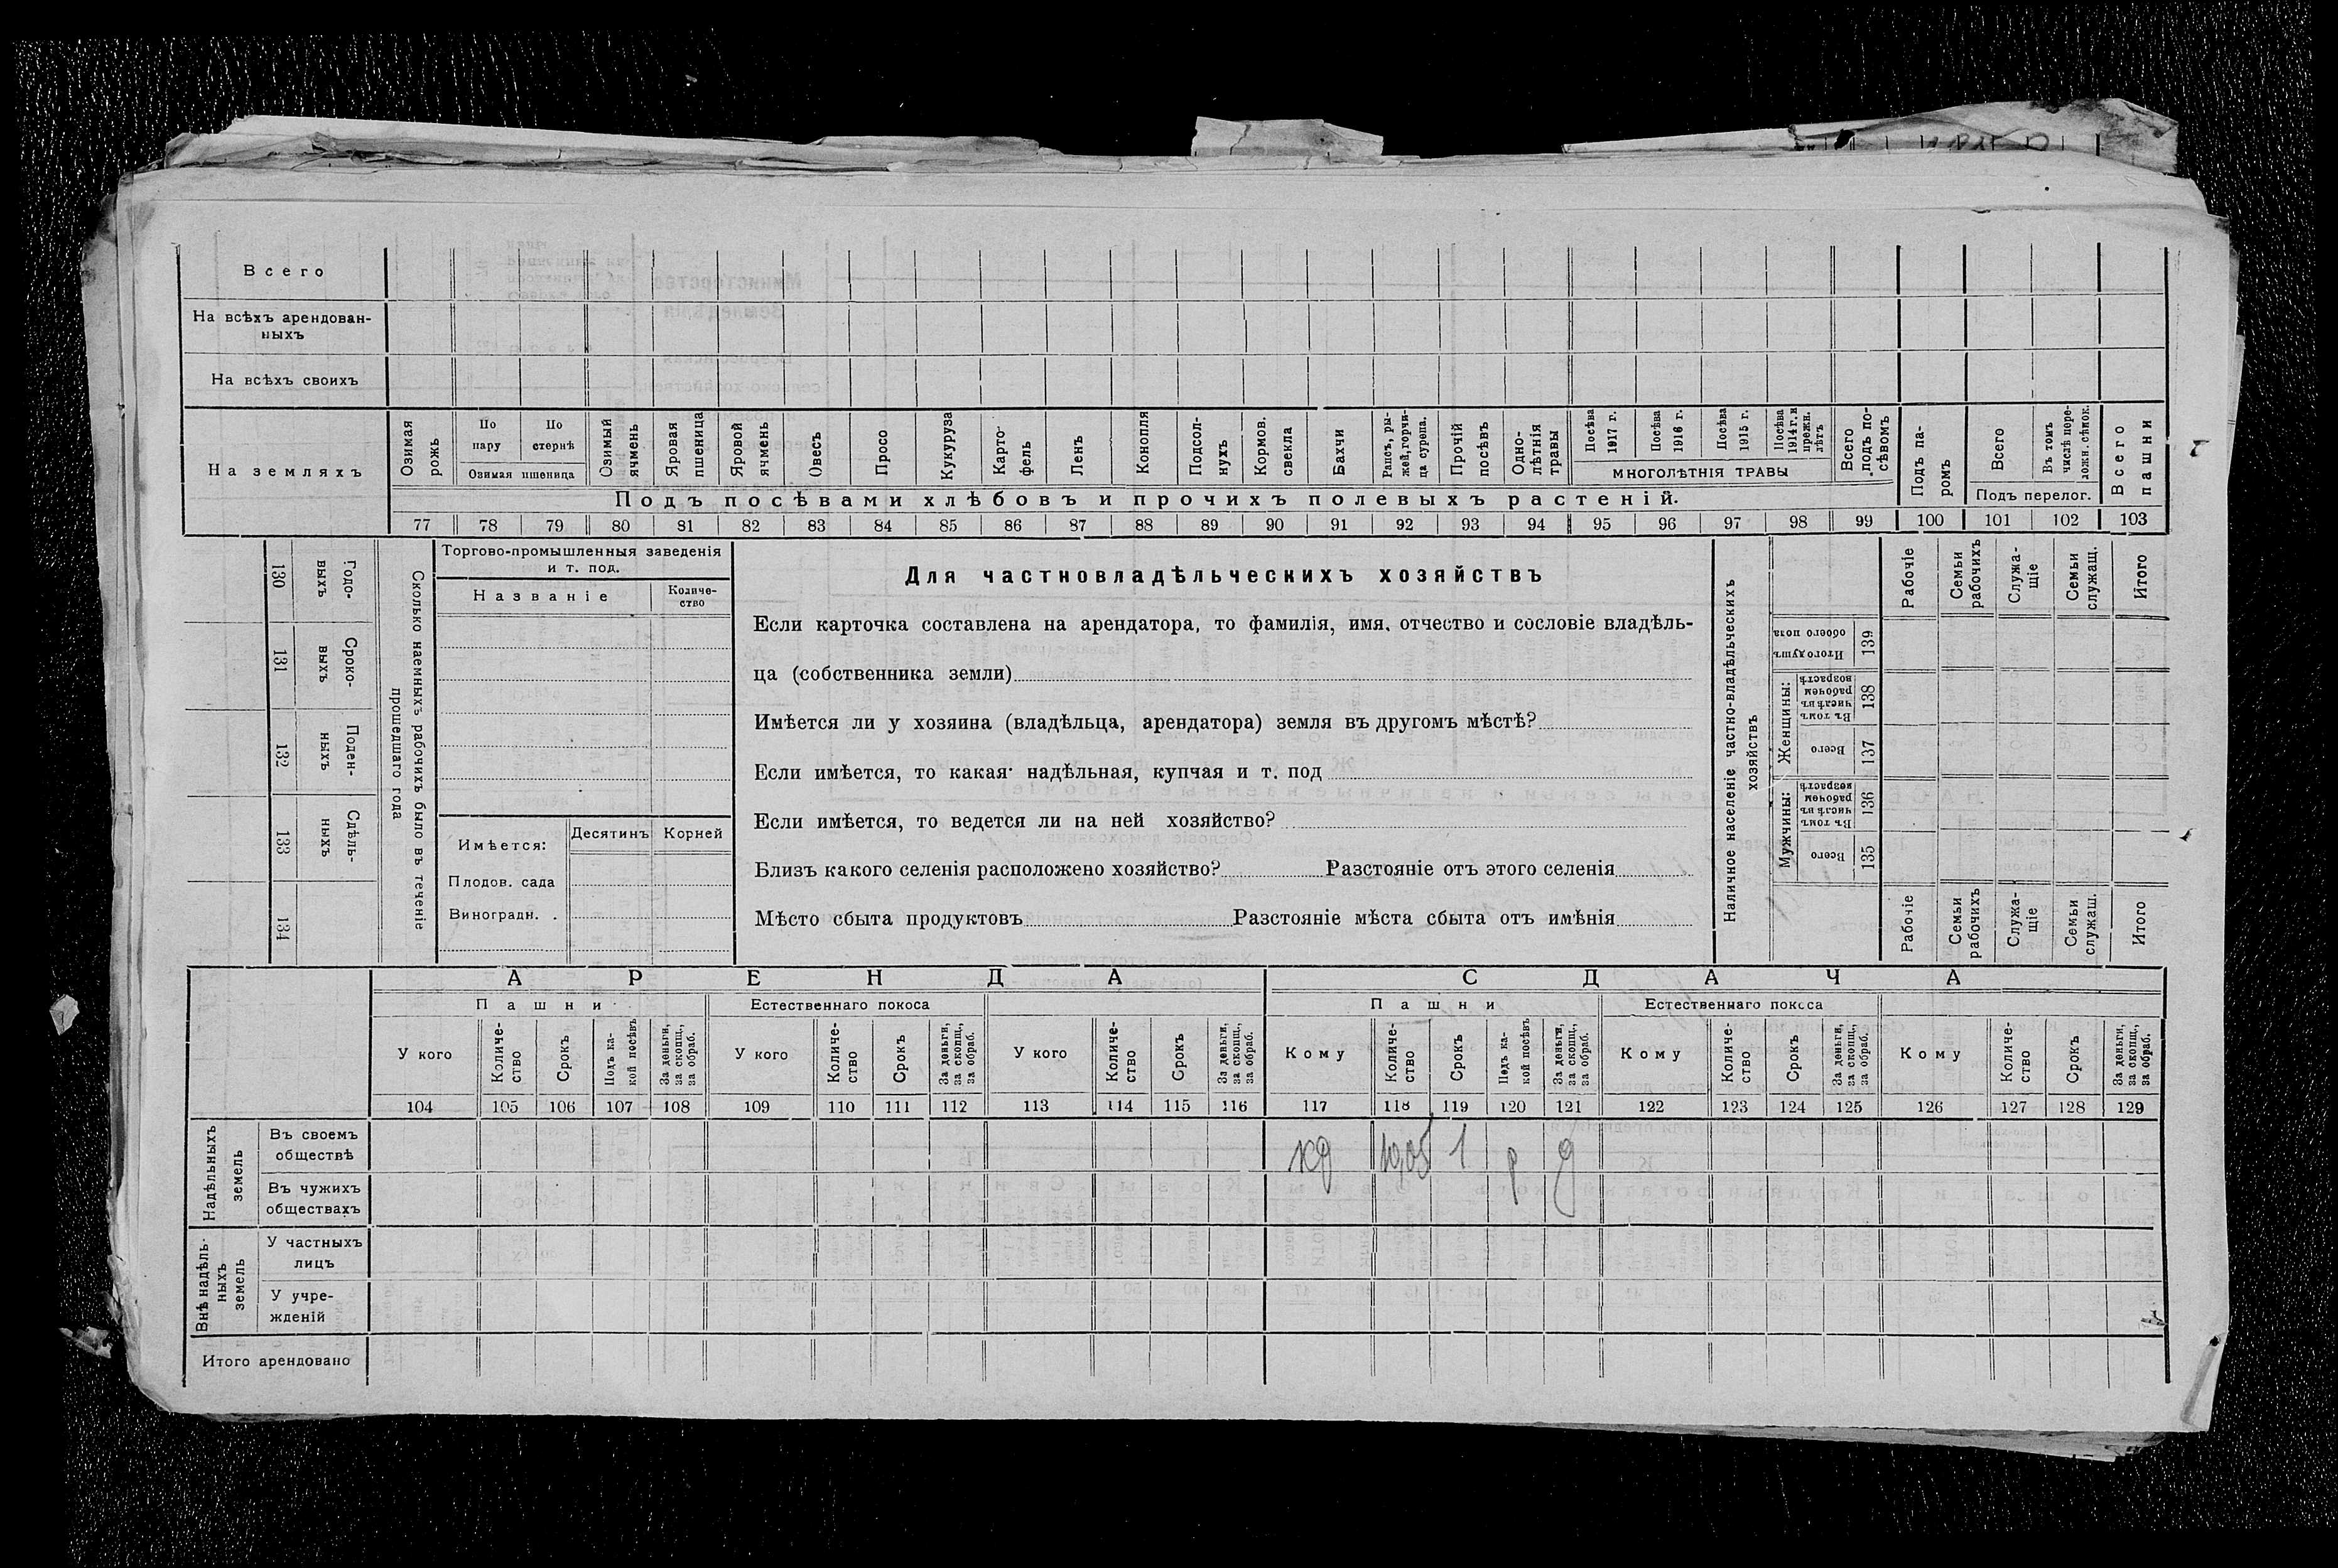 Всего
На всѣхъ арендован-
ныхъ
На всѣхъ своихъ
На земляхъ
Озимая рожь
По пару
По стернѣ
Озимая пшеница
Озимый ячмень
Яровая пшеница
Яровой ячмень
Овесъ
Просо
Кукуруза
Карто-
фель
Ленъ
Конопля
Подсол-
нухъ
Кормов. свекла
Бахчи
Рапсъ, ры-
жей, горчи-
ца сурепа.
Прочій посѣвъ
Одно-
лѣтнія
травы
Посѣва 1917 г.
Посѣва 1916 г.
Посѣва 1915 г.
Посѣва 1914 г. и прежн. лѣтъ
МНОГОЛѢТНІЯ ТРАВЫ
Всего подъ по-
сѣвомъ
Подъ па-
ромъ
Всего
Въ томъ числѣ пере-
ложн. сѣнок.
Подъ перелог.
Всего пашни
Подъ посѣвами хлѣбовъ и прочихъ полевыхъ растеній.
77 78 79 80 81 82 83 84 85 86 87 88 89 90 91 92 93 94 95 96 97 98 99 100 101 102 103
130 Годо-
выхъ
131 Сроко-
выхъ
132 Поден-
ныхъ
133 Сдѣль-
ныхъ
134
Сколько наемныхъ рабочихъ было въ теченіе
прошедшаго года
Торгово-промышленныя заведенія
и т. под.
Названіе
Количе-
ство
Имѣется:
Десятинъ
Корней
Плодов. сада
Виноградн. .
Для частновладѣльческихъ хозяйствъ
Если карточка составлена на арендатора, то фамилія, имя, отчество и сословіе владѣль-
ца (собственника земли)
Имѣется ли у хозяина (владѣльца, арендатора) земля въ другомъ мѣстѣ?
Если имѣется, то какая· надѣльная, купчая и т. под
Если имѣется, то ведется ли на ней хозяйство?
Близъ какого селенія расположено хозяйство? Разстояніе отъ этого селенія
Мѣсто сбыта продуктовъ Разстояніе мѣста сбыта отъ имѣнія
Наличное населеніе частно-владѣльческихъ
хозяйствъ
Рабочіе
Семьи рабочихъ
Служа-
щіе
Семьи служащ.
Итого
Итого душъ обоего пола 139
Женщины:
Въ томъ числѣ въ рабочемъ возрастѣ 138
Всего 137
Мужчины:
Въ томъ числѣ въ рабочемъ возрастѣ 136
Всего 135
Рабочіе
Семьи рабочихъ
Служа-
щіе
Семьи служащ.
Итого
АРЕНДА
СДАЧА
Пашни
Естественнаго покоса
Пашни
Естественнаго покоса
У кого
Количе-
ство
Срокъ
Подъ ка-
кой посѣвъ
За деньги,
за скопщ.,
за обраб.
У кого
Количе-
ство
Срокъ
За деньги,
за скопщ.,
за обраб.
У кого
Количе-
ство
Срокъ
За деньги,
за скопщ.,
за обраб.
Кому
Количе-
ство
Срокъ
Подъ ка-
кой посѣвъ
За деньги,
за скопщ.,
за обраб.
Кому
Количе-
ство
Срокъ
За деньги,
за скопщ.,
за обраб.
Кому
Количе-
ство
Срокъ
За деньги,
за скопщ.,
за обраб.
104 105 106 107 108 109 110 111 112 113 114 115 116 117 118 119 120 121 122 123 124 125 126 127 128 129
Надѣльныхъ
земель
Въ своемъ
обществѣ
кд 10,05 1 р д
Въ чужихъ
обществахъ
Внѣ надѣль-
ныхъ
земель
У частныхъ
лицъ
У учре-
жденій
Итого арендовано